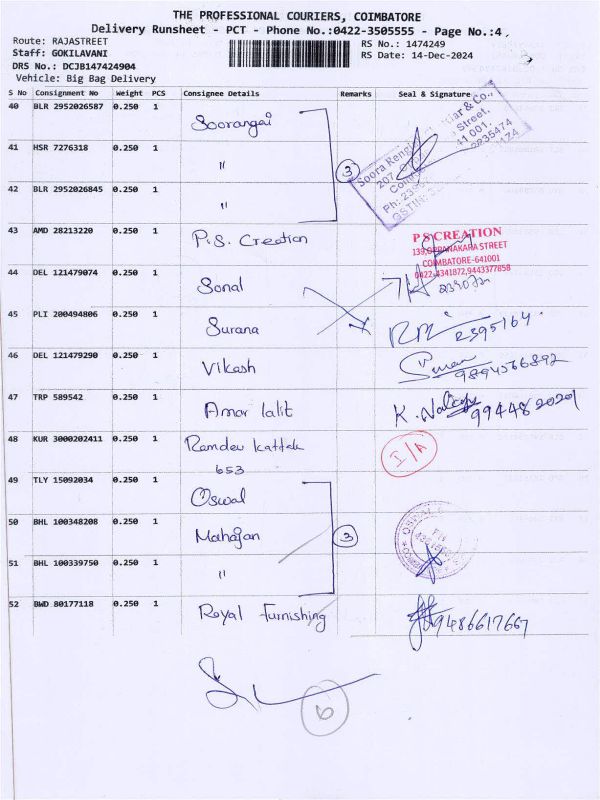 THE PROFESSIONAL COURIERS, COIMBATORE
Delivery Runsheet - PCT - Phone No.:0422-3505555 - Page No.:4
Route: RAJASTREET RS No.: 1474249
Staff: GOKILAVANI RS Date: 14-Dec-2024
DRS No.: DCJB147424904
Vehicle: Big Bag Delivery
S No Consignment No Weight PCS Consignee Details Remarks Seal & Signature
40 BLR 2952026587 0.250 1 Soorangai
41 HSR 7276318 0.250 1 "
3
42 BLR 2952026845 0.250 1 "
43 AMD 28213220 0.250 1 P.S. Creation
P S CREATION
139,OPPANAKARA STREET
COIMBATORE-641001
0422-4341872,9443377858
44 DEL 121479074 0.250 1 Sonal
45 PLI 200494806 0.250 1 Surana 2395164
46 DEL 121479290 0.250 1 Vikash
9894566892
47 TRP 589542 0.250 1 Amar lalit 99448 20201
48 KUR 3000202411 0.250 1 Ramdev Kattak I/A
653
49 TLY 15092034 0.250 1 Oswal
50 BHL 100348208 0.250 1 Mahajan 3
51 BHL 100339750 0.250 1 "
52 BWD 80177118 0.250 1 Royal Furnishing 9486617667
6